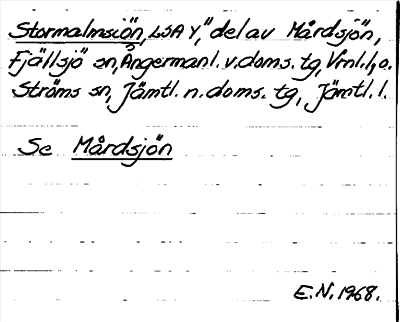 Stormalmsiön, LSA Y, "del av Mårdsjön,
Fjällsjö sn, Ångermanl. v. doms. tg, Vrnl. l, o.
Ströms sn, Jämtl. n. doms. tg, Jämtl. l.
Se Mårdsjön
E.N. 1968.